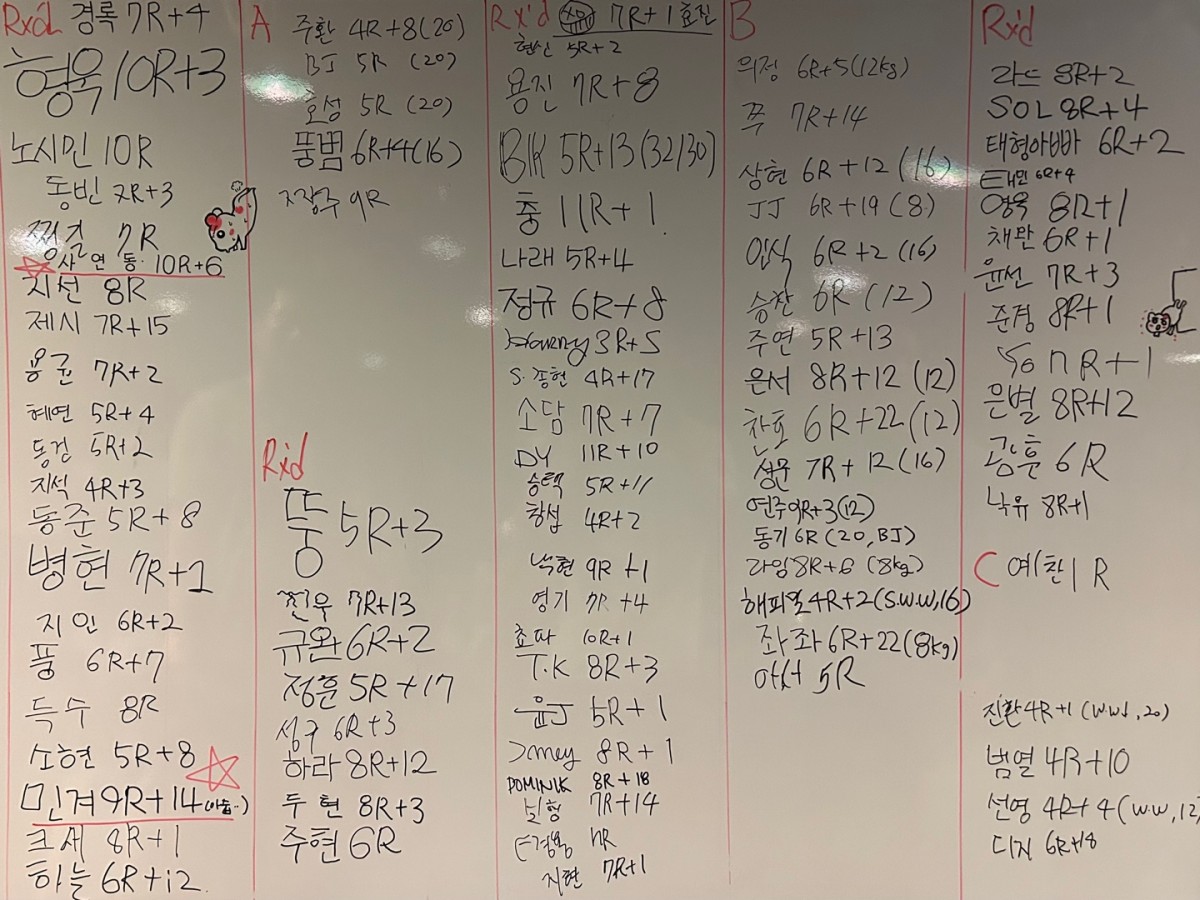 Rxd 경록 7R+4
형욱 10R+3
노시민 10R
동빈 7R+3
찡걸 7R
사연동 10R+6
지선 8R
제시 7R+15
용균 7R+2
혜연 5R+4
동검 5R+2
지석 4R+3
동준 5R+8
병현 7R+1
지인 6R+2
풍 6R+7
득수 8R
소현 5R+8
민겨 9R+14
크세 8R+1
하늘 6R+12
A 주환 4R+8(20)
BJ 5R (20)
호성 5R (20)
뚱범 6R+4(16)
지장주 9R
Rx'd
뚱 5R+3
전우 7R+13
규완 6R+2
정훈 5R+17
성구 6R+3
하라 8R+12
두현 8R+3
주현 6R
Rx'd 7R+1 효진
현신 5R+2
용진 7R+8
BK 5R+13(32/30)
충 11R+1
나래 5R+4
정규 6R+8
Harry 3R+5
S.종현 4R+17
소담 7R+7
DY 11R+10
승택 5R+11
창섭 4R+2
낙현 9R+1
영기 7R+4
쵸파 10R+1
T.K 8R+3
윤J 5R+1
Jmey 8R+1
DOMINIK 8R+18
보형 7R+14
E경용 7R
지현 7R+1
B
의정 6R+5(12kg)
쭈 7R+14
상현 6R+12 (16)
JJ 6R+19 (8)
인식 6R+2 (16)
승찬 6R (12)
주연 5R+13
은서 8R+12 (12)
찬호 6R+22(12)
성문 7R+12(16)
연주 9R+3(12)
동기 6R (20, BJ)
라임 8R+6 (8kg)
해피열 4R+2(S.W.W,16)
좌좌 6R+22(8kg)
5R
Rx'd
라드 8R+2
SOL 8R+4
태형아빠 6R+2
태민 6R+4
영욱 8R+1
채완 6R+1
윤선 7R+3
준경 8R+1
Yo 7R+1
은별 8R+12
광훈 6R
낙유 8R+1
C 예찬 1R
진환 4R+1 (W.W, 20)
범열 4R+10
선영 4R+4 (W.W, 12)
디지 6R+18